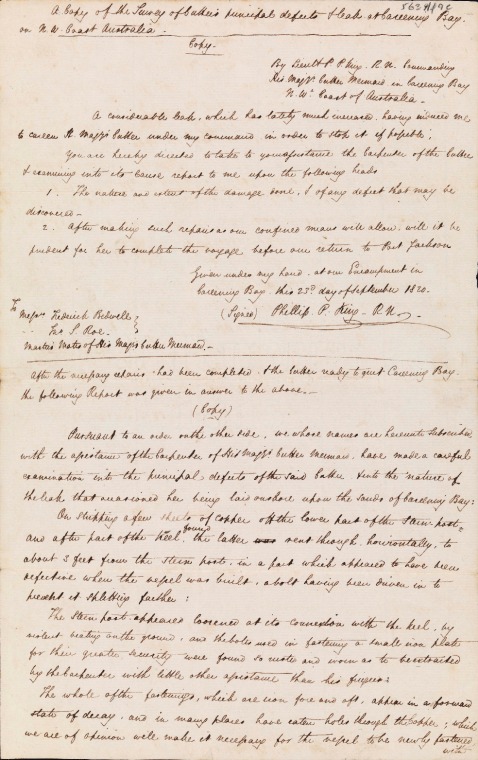 A Copy of the Survey of Cutter's principal defects & leak at Careening Bay.
on N.W. Coast Australia.
Copy.
By Lieutt. P. P. King. R.N. Commanding
His Majys. Cutter Mermaid in Careening Bay
N.Wn. Coast of Australia.
A considerable leak, which has lately much increased, having induced me
to careen H. Majys. Cutter under my command in order to stop it if possible;
You are hereby directed to take to your assistance the Carpenter of the Cutter
& examining into its Cause report to me upon the following heads
1. The nature and extent of the damage done, & of any defect that may be
discovered.
2. After making such repairs as our confined means will allow, will it be
prudent for her to complete the voyage before our return to Port Jackson
Given under my hand, at our Encampment in
Careening Bay this 23d. day of September 1820.
(Signed) Phillip P. King. R.N.
To
Messrs. Frederick Bedwell
Jno. S. Roe.
Master's Mates of His Majys Cutter Mermaid.
After the necessary repairs had been completed & the Cutter ready to quit Careening Bay
the following Report was given in answer to the above.
(Copy)
Pursuant to an order on the other side, we whose names are hereunto subscribed
with the assistance of the Carpenter of His Majys. Cutter Mermaid, have made a careful
examination into the principal defects of the said Cutter & into the nature of
the leak that occasioned her being laid onshore upon the Sands of Careening Bay:
On stripping a few sheets of copper off the lower part of the Stern-post,
and after part of the keel, found the latter rent through, horizontally, to
about 3 feet from the stern post, in a part which appeared to have been
defective when the vessel was built, a bolt having been driven in to
prevent its splitting farther:
The Stern post appeared loosened at its connexion with the keel, by
violent beating on the ground, and the bolts used in fastening a small iron plate
for their greater security were found so rotten and worn as to be extracted
by the Carpenter with little other assistance than his fingers:
The whole of the fastenings, which are iron fore and aft, appear in a forward
state of decay, and in many places have eaten holes through the Copper; which
we are of opinion will make it necessary for the vessel to be newly fastened
with